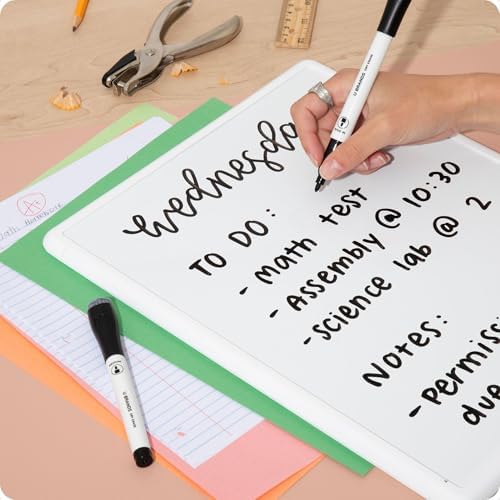 Wednesday
TO DO:
- Math test
- Assembly @ 10:30
- Science lab @ 2
Notes:
- Permissi
due
U BRANDS
U BRANDS
A+
Math Homework